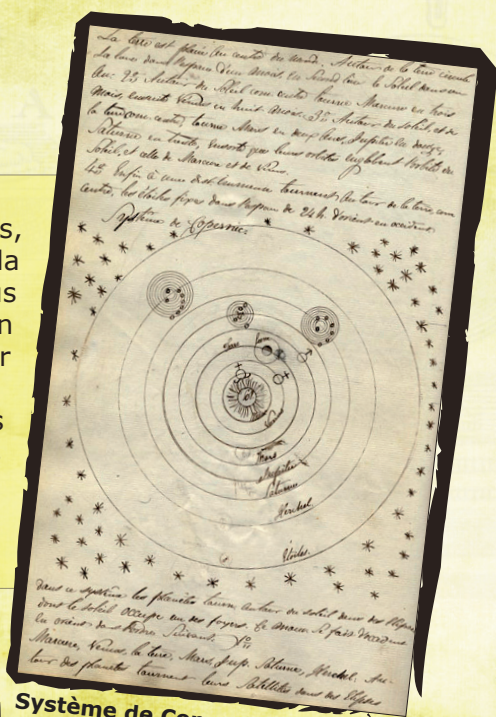 La terre est placée au centre du monde. Autour de la terre circule
la lune dans l'espace d'un mois. En Second lieu le Soleil dans un
an. 2º Autour du Soleil comme centre tourne Mercure en trois
mois, ensuite Vénus en huit mois. 3º Autour du Soleil, et de
la terre comme centre tourne Mars en deux ans, Jupiter en douze,
Saturne en trente, ensorte que leurs orbites englobent l'orbite du
Soleil, et celle de Mercure et de Vénus.
4º Enfin à une dist. tournent autour de la terre, comme
centre, les étoiles fixes dans l'espace de 24 h. d'orient en occident.
Système de Copernic.
Terre
Vénus
Mars
Jupiter
Saturne
Herchel
Étoiles.
dans ce système les planètes tournent autour du soleil dans des Ellipses
dont le soleil occupe un des foyers. Ce mouv. se fait d'occident
en orient dans l'ordre Suivant.
Mercure, Vénus, la terre, Mars, Jup. Saturne, Herchel. Au-
tour des planètes tournent leurs Satellites dans des Ellipses
s,
la
us
n
r
s
Système de Cop